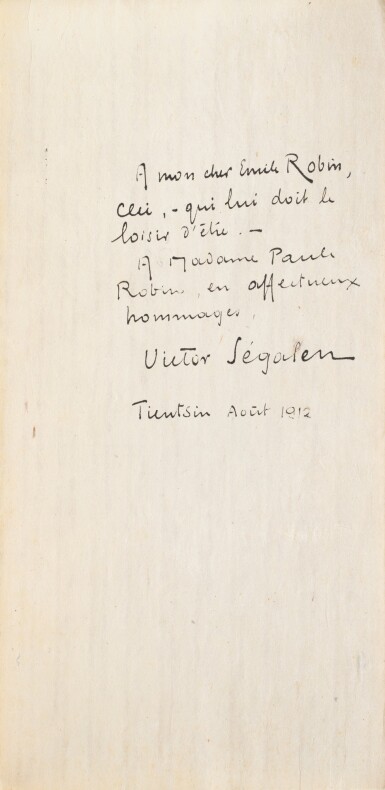 A mon cher Emile Robin,
Ceci, - qui lui doit le
loisir d'être. -
A Madame Paule
Robin, en affectueux
hommages,
Victor Ségalen
Tientsin Août 1912